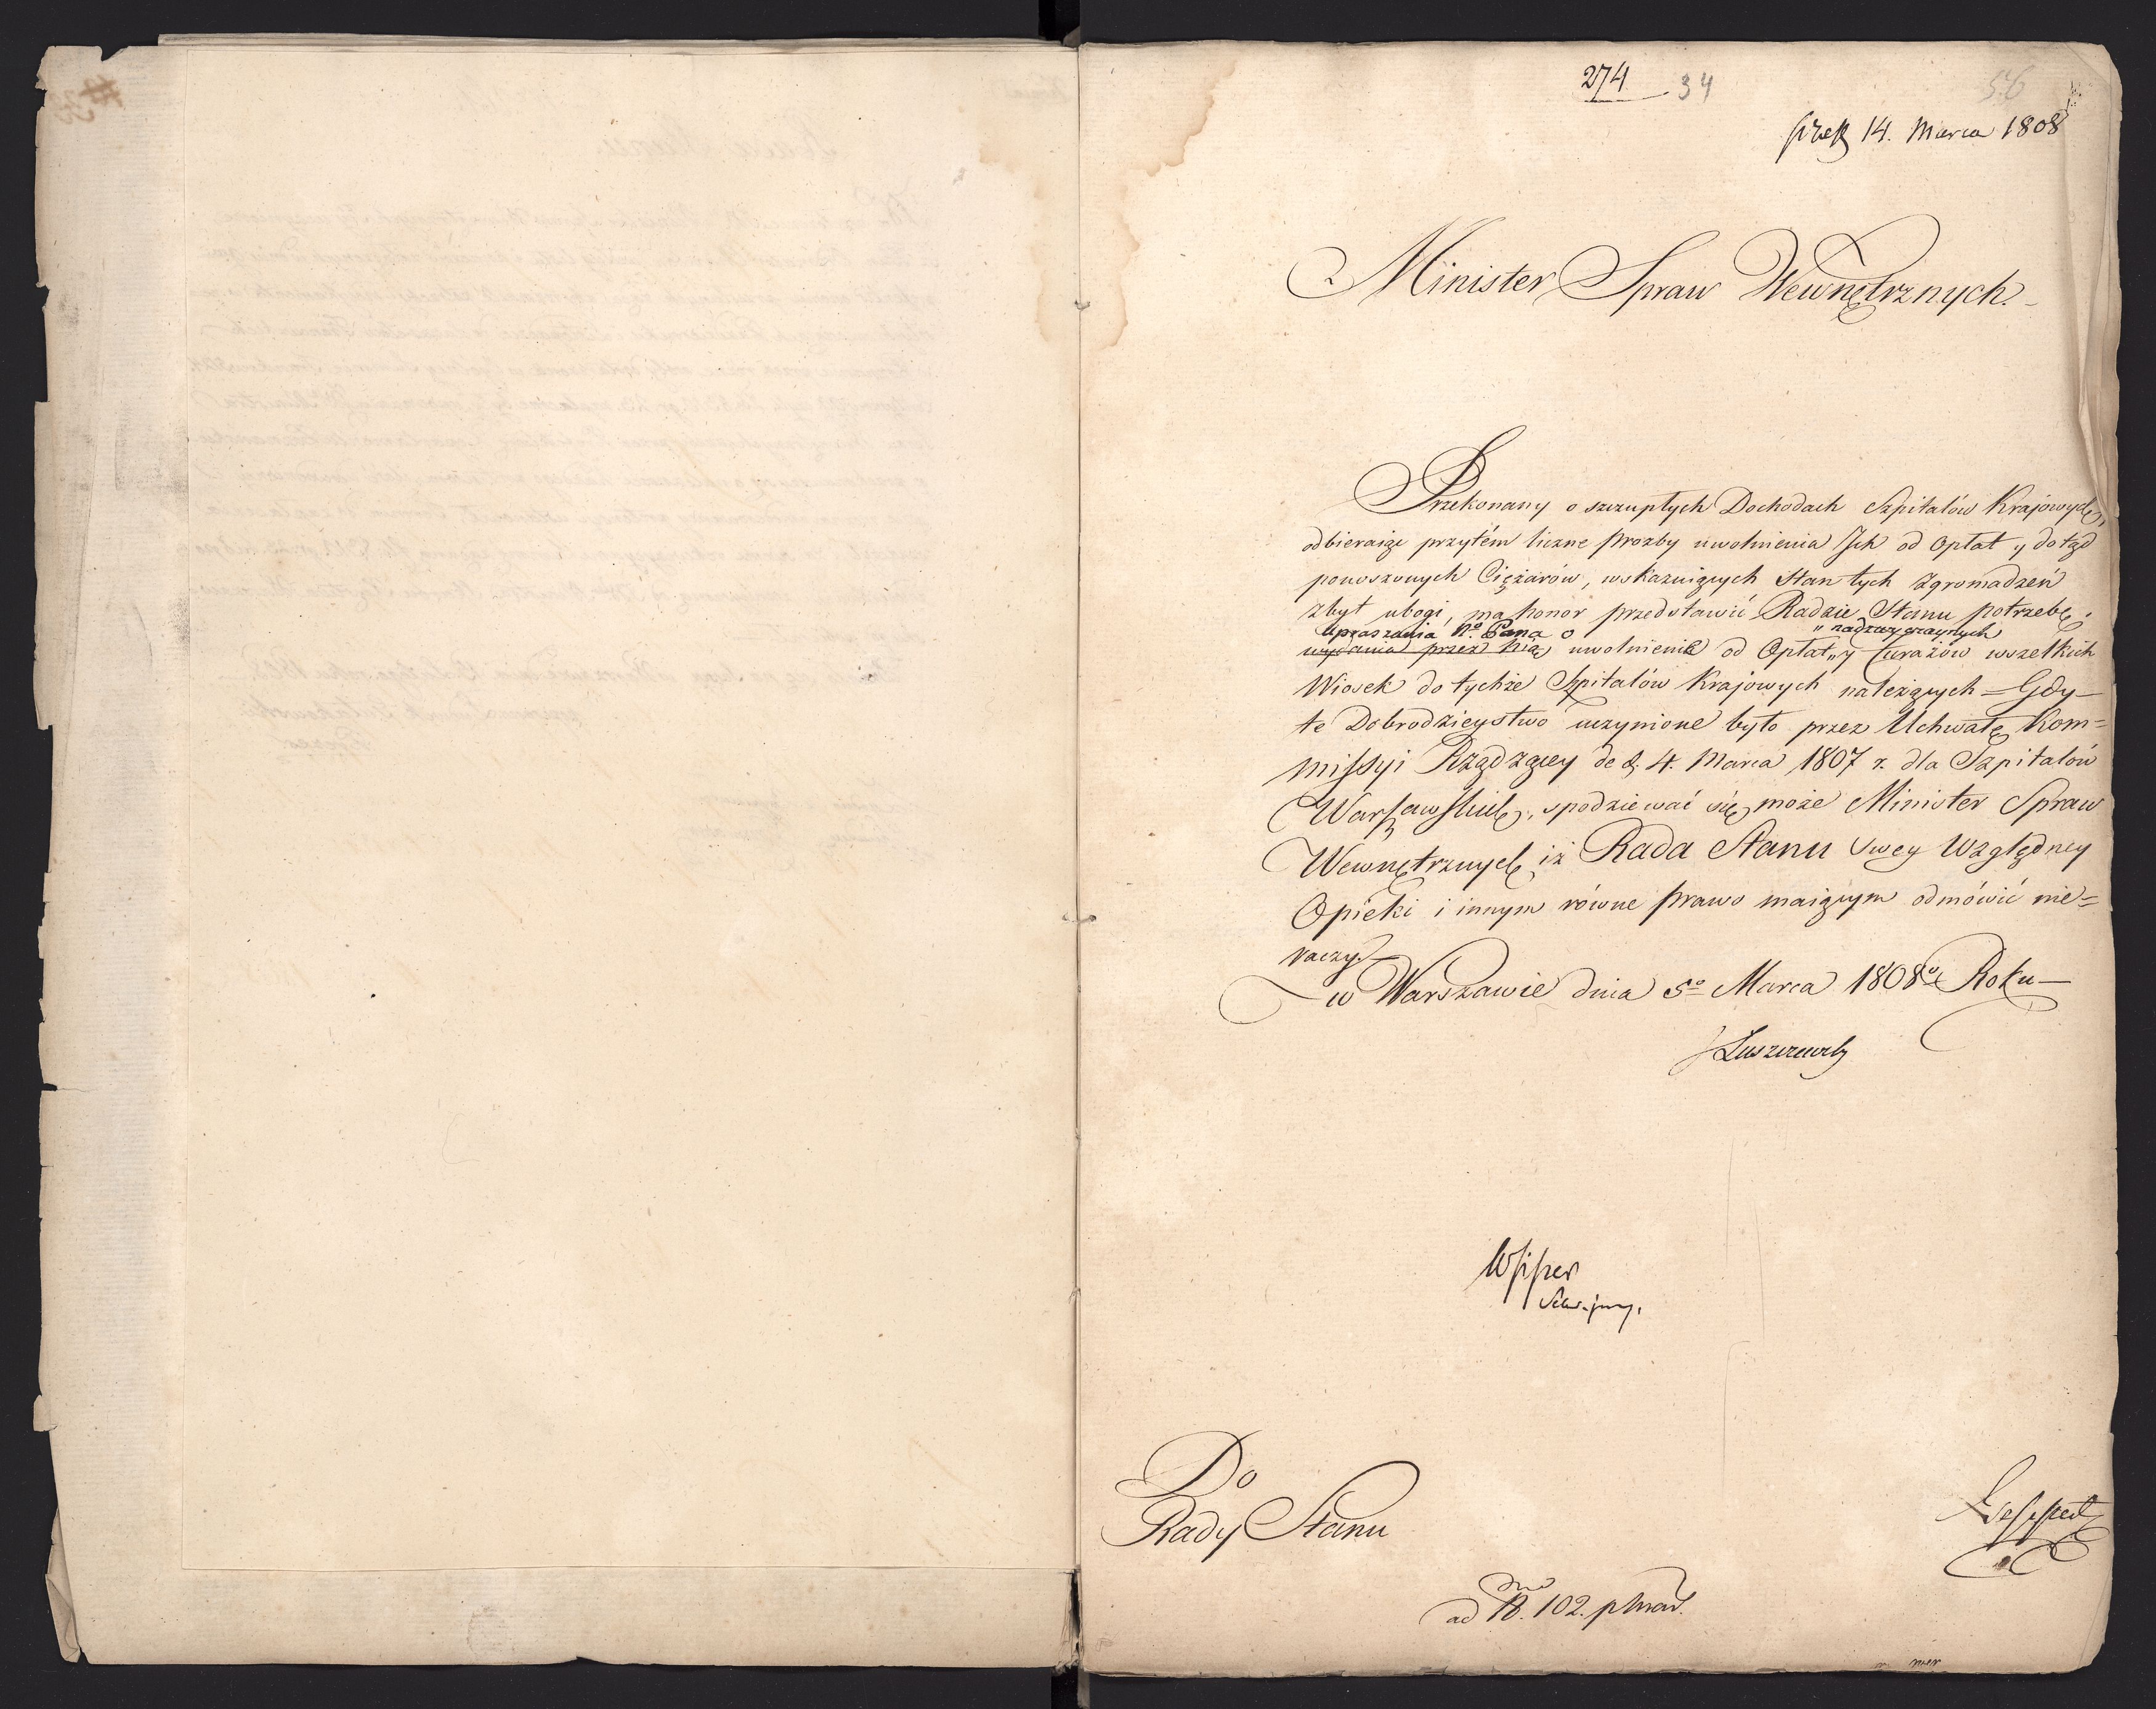 274 34 56
14. Marca 1808
Minister Spraw Wewnętrznych.
Przekonany o szczupłych Dochodach Szpitalów Krajowych,
odbieraiąc przytém liczne prozby uwolnienia Ich od Opłat y dotąd
ponoszonych Ciężarów, wskazuiących Stan tych zgromadzeń
zbyt ubogi, ma honor przedstawić Radzie Stanu potrzebę
upraszania No. Pana o " nadzwyczaynych
wydania przez Nią uwolnienia od Opłat " y Furażów wszelkich
Wiosek do tychże Szpitalów Krajowych należących – Gdy
te Dobrodzieystwo uczynione było przez Uchwałę Kom=
missyi Rządzącey de d. 4. Marca 1807 r. dla Szpitalów
Warszawskich, spodziewać się może Minister Spraw
Wewnętrznych, iż Rada Stanu swey Względney
Opieki i innym równe prawo maiącym odmówić nie=
raczy.
w Warszawie dnia 5o Marca 1808o Roku
Łuszczewski
Do
Rady Stanu
ad N. 102.